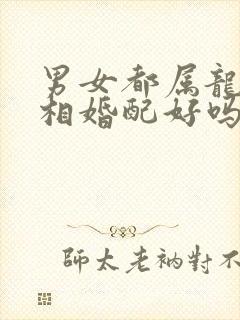 男女都属龍
相婚配好吗
師太老衲對不